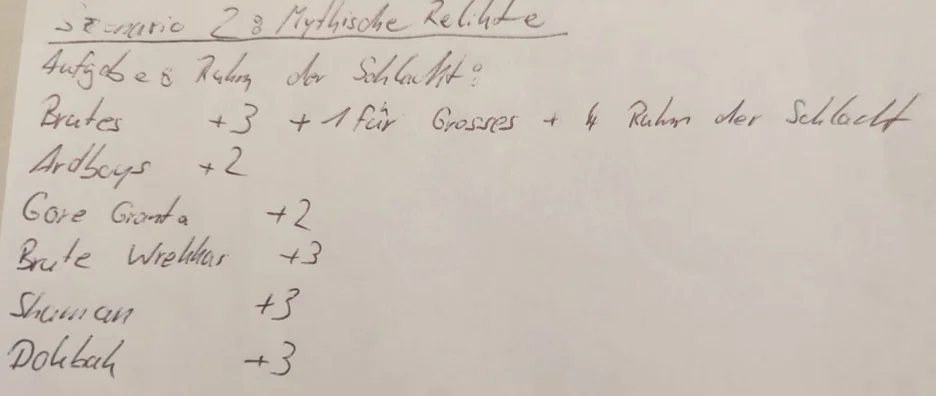 Szenario 2: Mythische Relikte
Aufgabe: Ruhm der Schlacht:
Brutes +3 +1 für Grosses + 4 Ruhm der Schlacht
Ardboys +2
Gore Grunta +2
Brute Wrekkas +3
Shaman +3
Dokbak +3